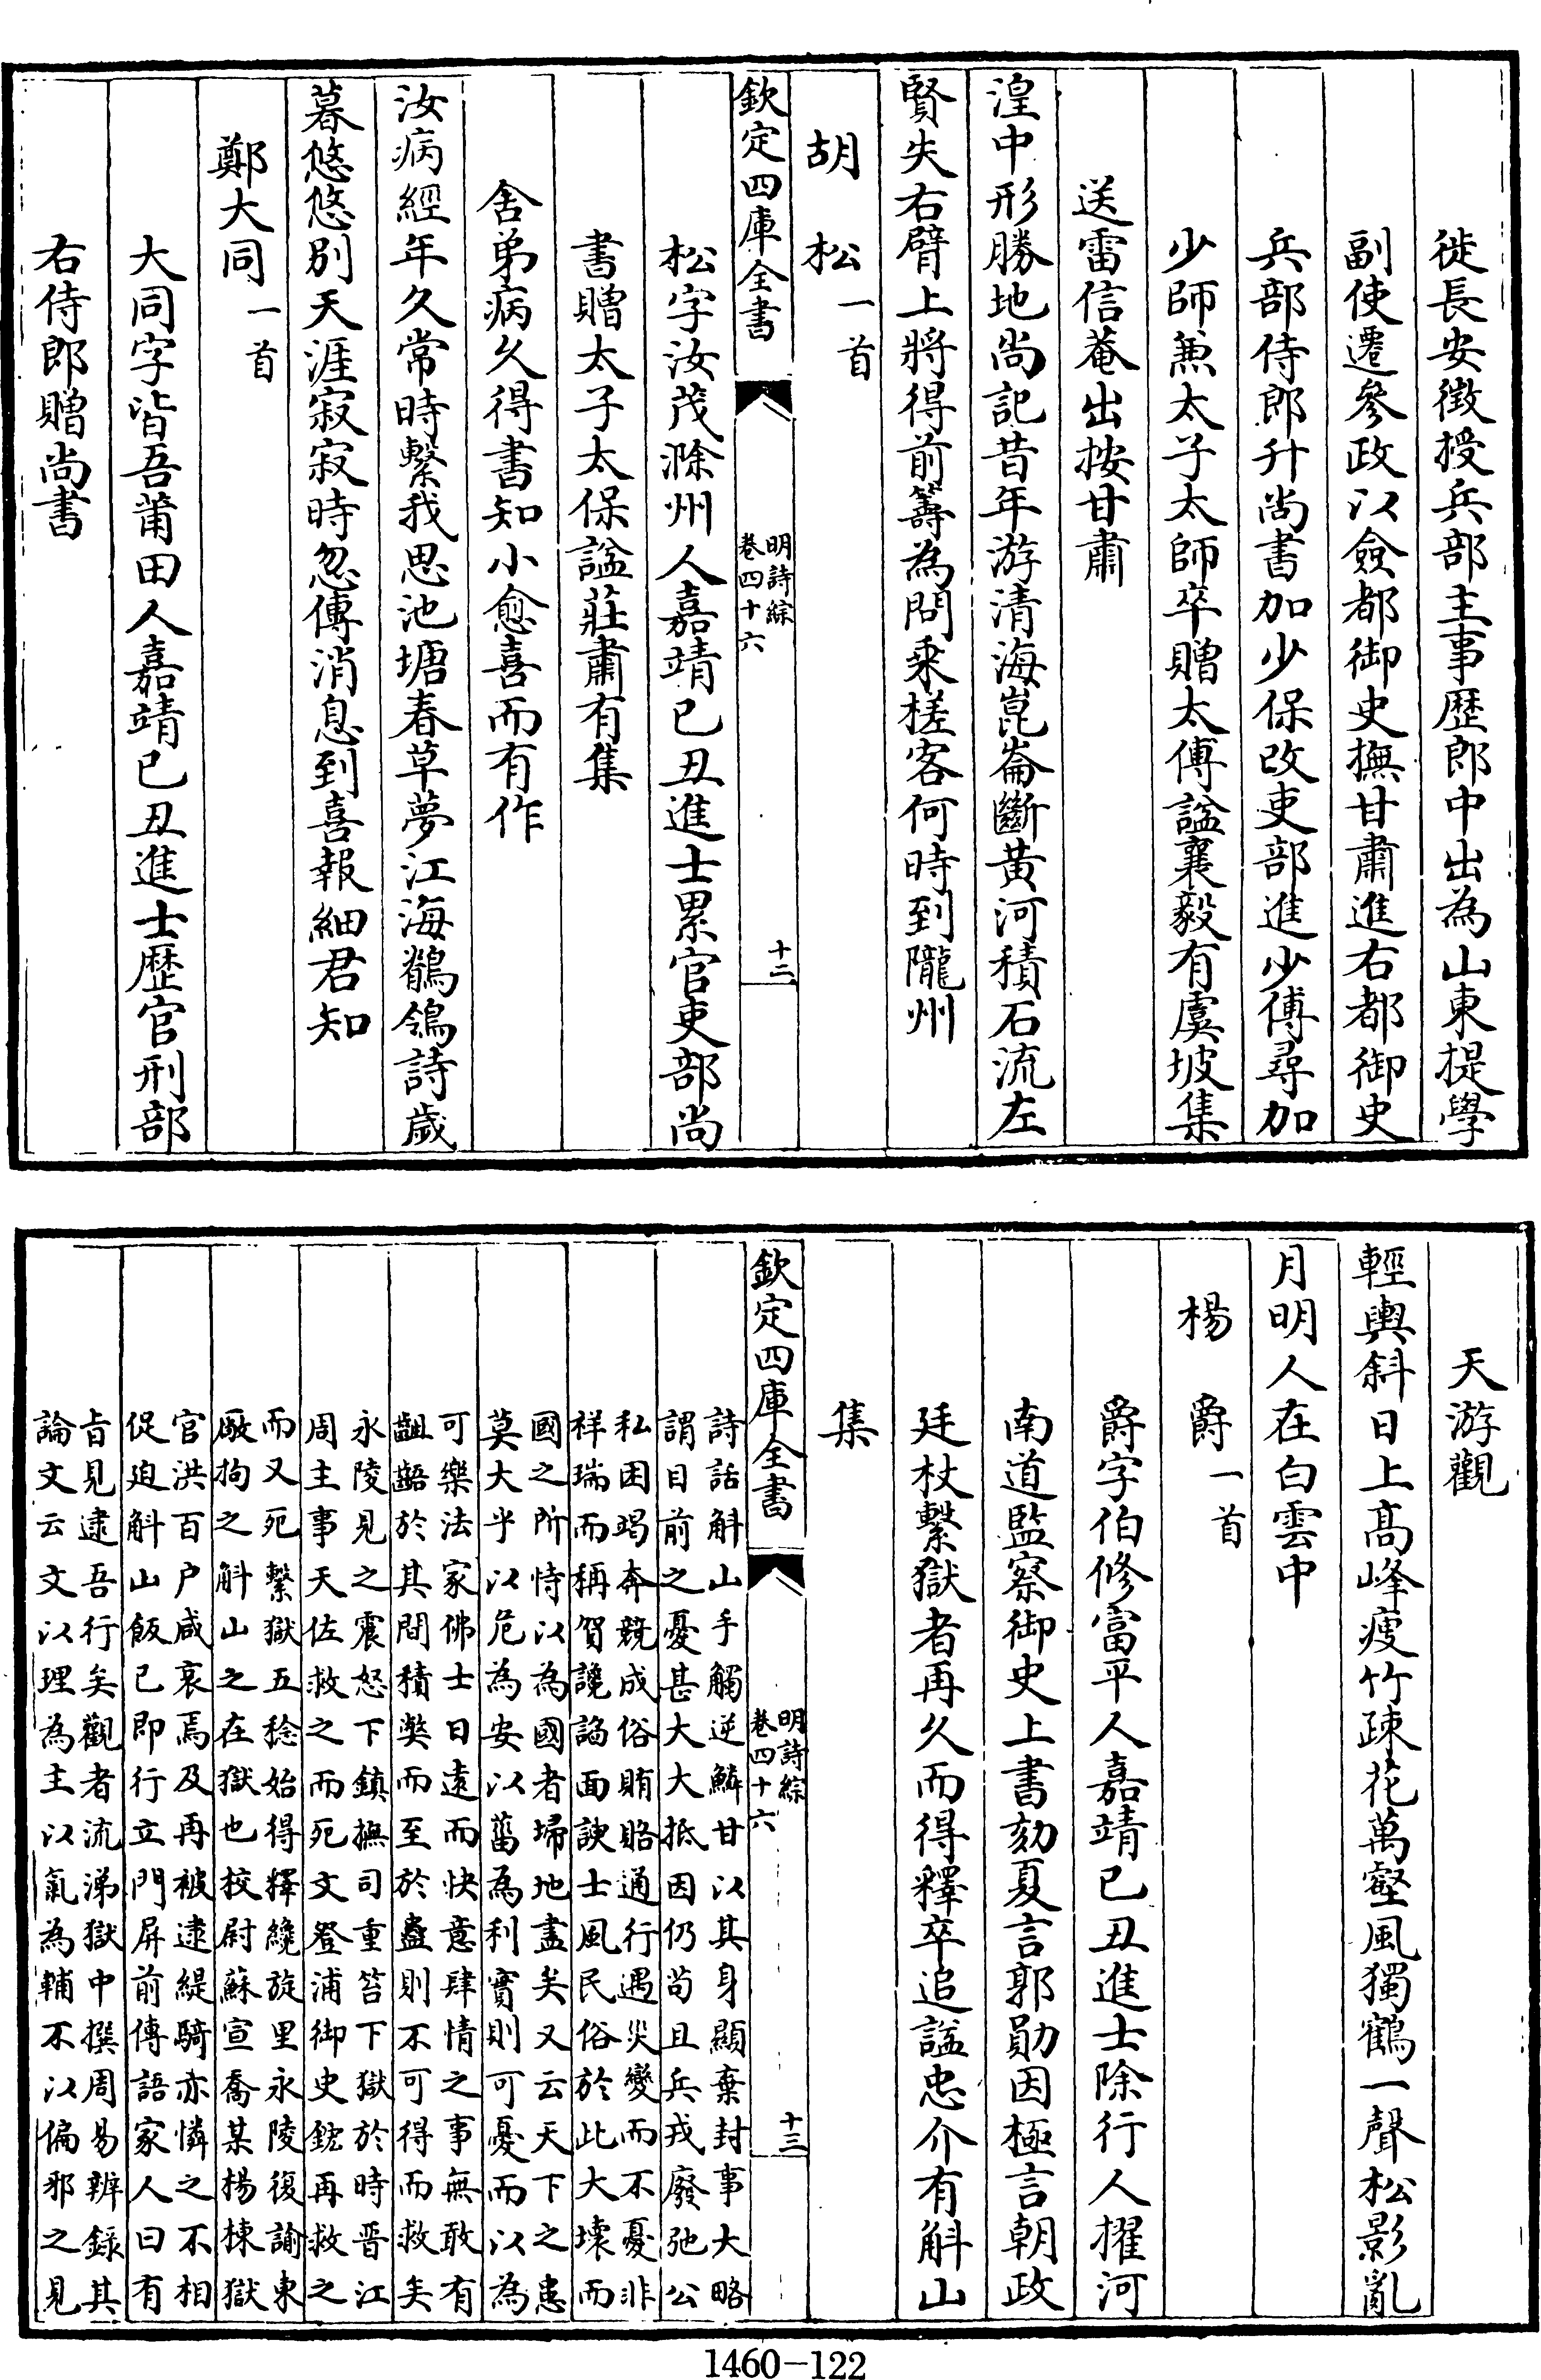 徙長安徵授兵部主事歴郎中出為山東提學
副使遷參政以僉都御史撫甘肅進右都御史
兵部侍郎升尚書加少保改吏部進少傅尋加
少師兼太子太師卒贈太傅諡襄毅有虞坡集
送雷信菴出按甘肅
湟中形勝地尚記昔年游清海崑崙斷黃河積石流左
賢失右臂上將得前籌為問乘槎客何時到隴州
胡松一首
欽定四庫全書
明詩綜
卷四十六
十二
松字汝茂滁州人嘉靖己丑進士累官吏部尚
書贈太子太保諡莊肅有集
舍弟病久得書知小愈喜而有作
汝病經年久常時繫我思池塘春草夢江海鶺鴒詩歲
暮悠悠別天涯寂寂時忽傳消息到喜報細君知
鄭大同一首
大同字皆吾莆田人嘉靖己丑進士歴官刑部
右侍郎贈尚書
天游觀
輕輿斜日上高峰瘦竹疎花萬壑風獨鶴一聲松影亂
月明人在白雲中
楊爵一首
爵字伯修富平人嘉靖己丑進士除行人擢河
南道監察御史上書劾夏言郭勛因極言朝政
廷杖繫獄者再久而得釋卒追諡忠介有斛山
集
欽定四庫全書
明詩綜
卷四十六
十三
詩話斛山手觸逆鱗甘以其身顯棄封事大略
謂目前之憂甚大大抵因仍苟且兵戎廢弛公
私困竭奔競成俗賄賂通行遇災變而不憂非
祥瑞而稱賀讒謟面諛士風民俗於此大壞而
國之所恃以為國者埽地盡矣又云天下之患
莫大乎以危為安以菑為利實則可憂而以為
可樂法家佛士日遠而快意肆情之事無敢有
齟齬於其間積獘而至於蠱則不可得而救矣
永陵見之震怒下鎮撫司重笞下獄於時晉江
周主事天佐救之而死文登浦御史鋐再救之
而又死繫獄五稔始得釋纔旋里永陵復諭東
厰拘之斛山之在獄也校尉蘇宣喬某楊棟獄
官洪百户咸哀焉及再被逮緹騎亦憐之不相
促迫斛山飯已即行立門屏前傳語家人曰有
旨見逮吾行矣觀者流涕獄中撰周易辨錄其
論文云文以理為主以氣為輔不以偏邪之見
1460-122